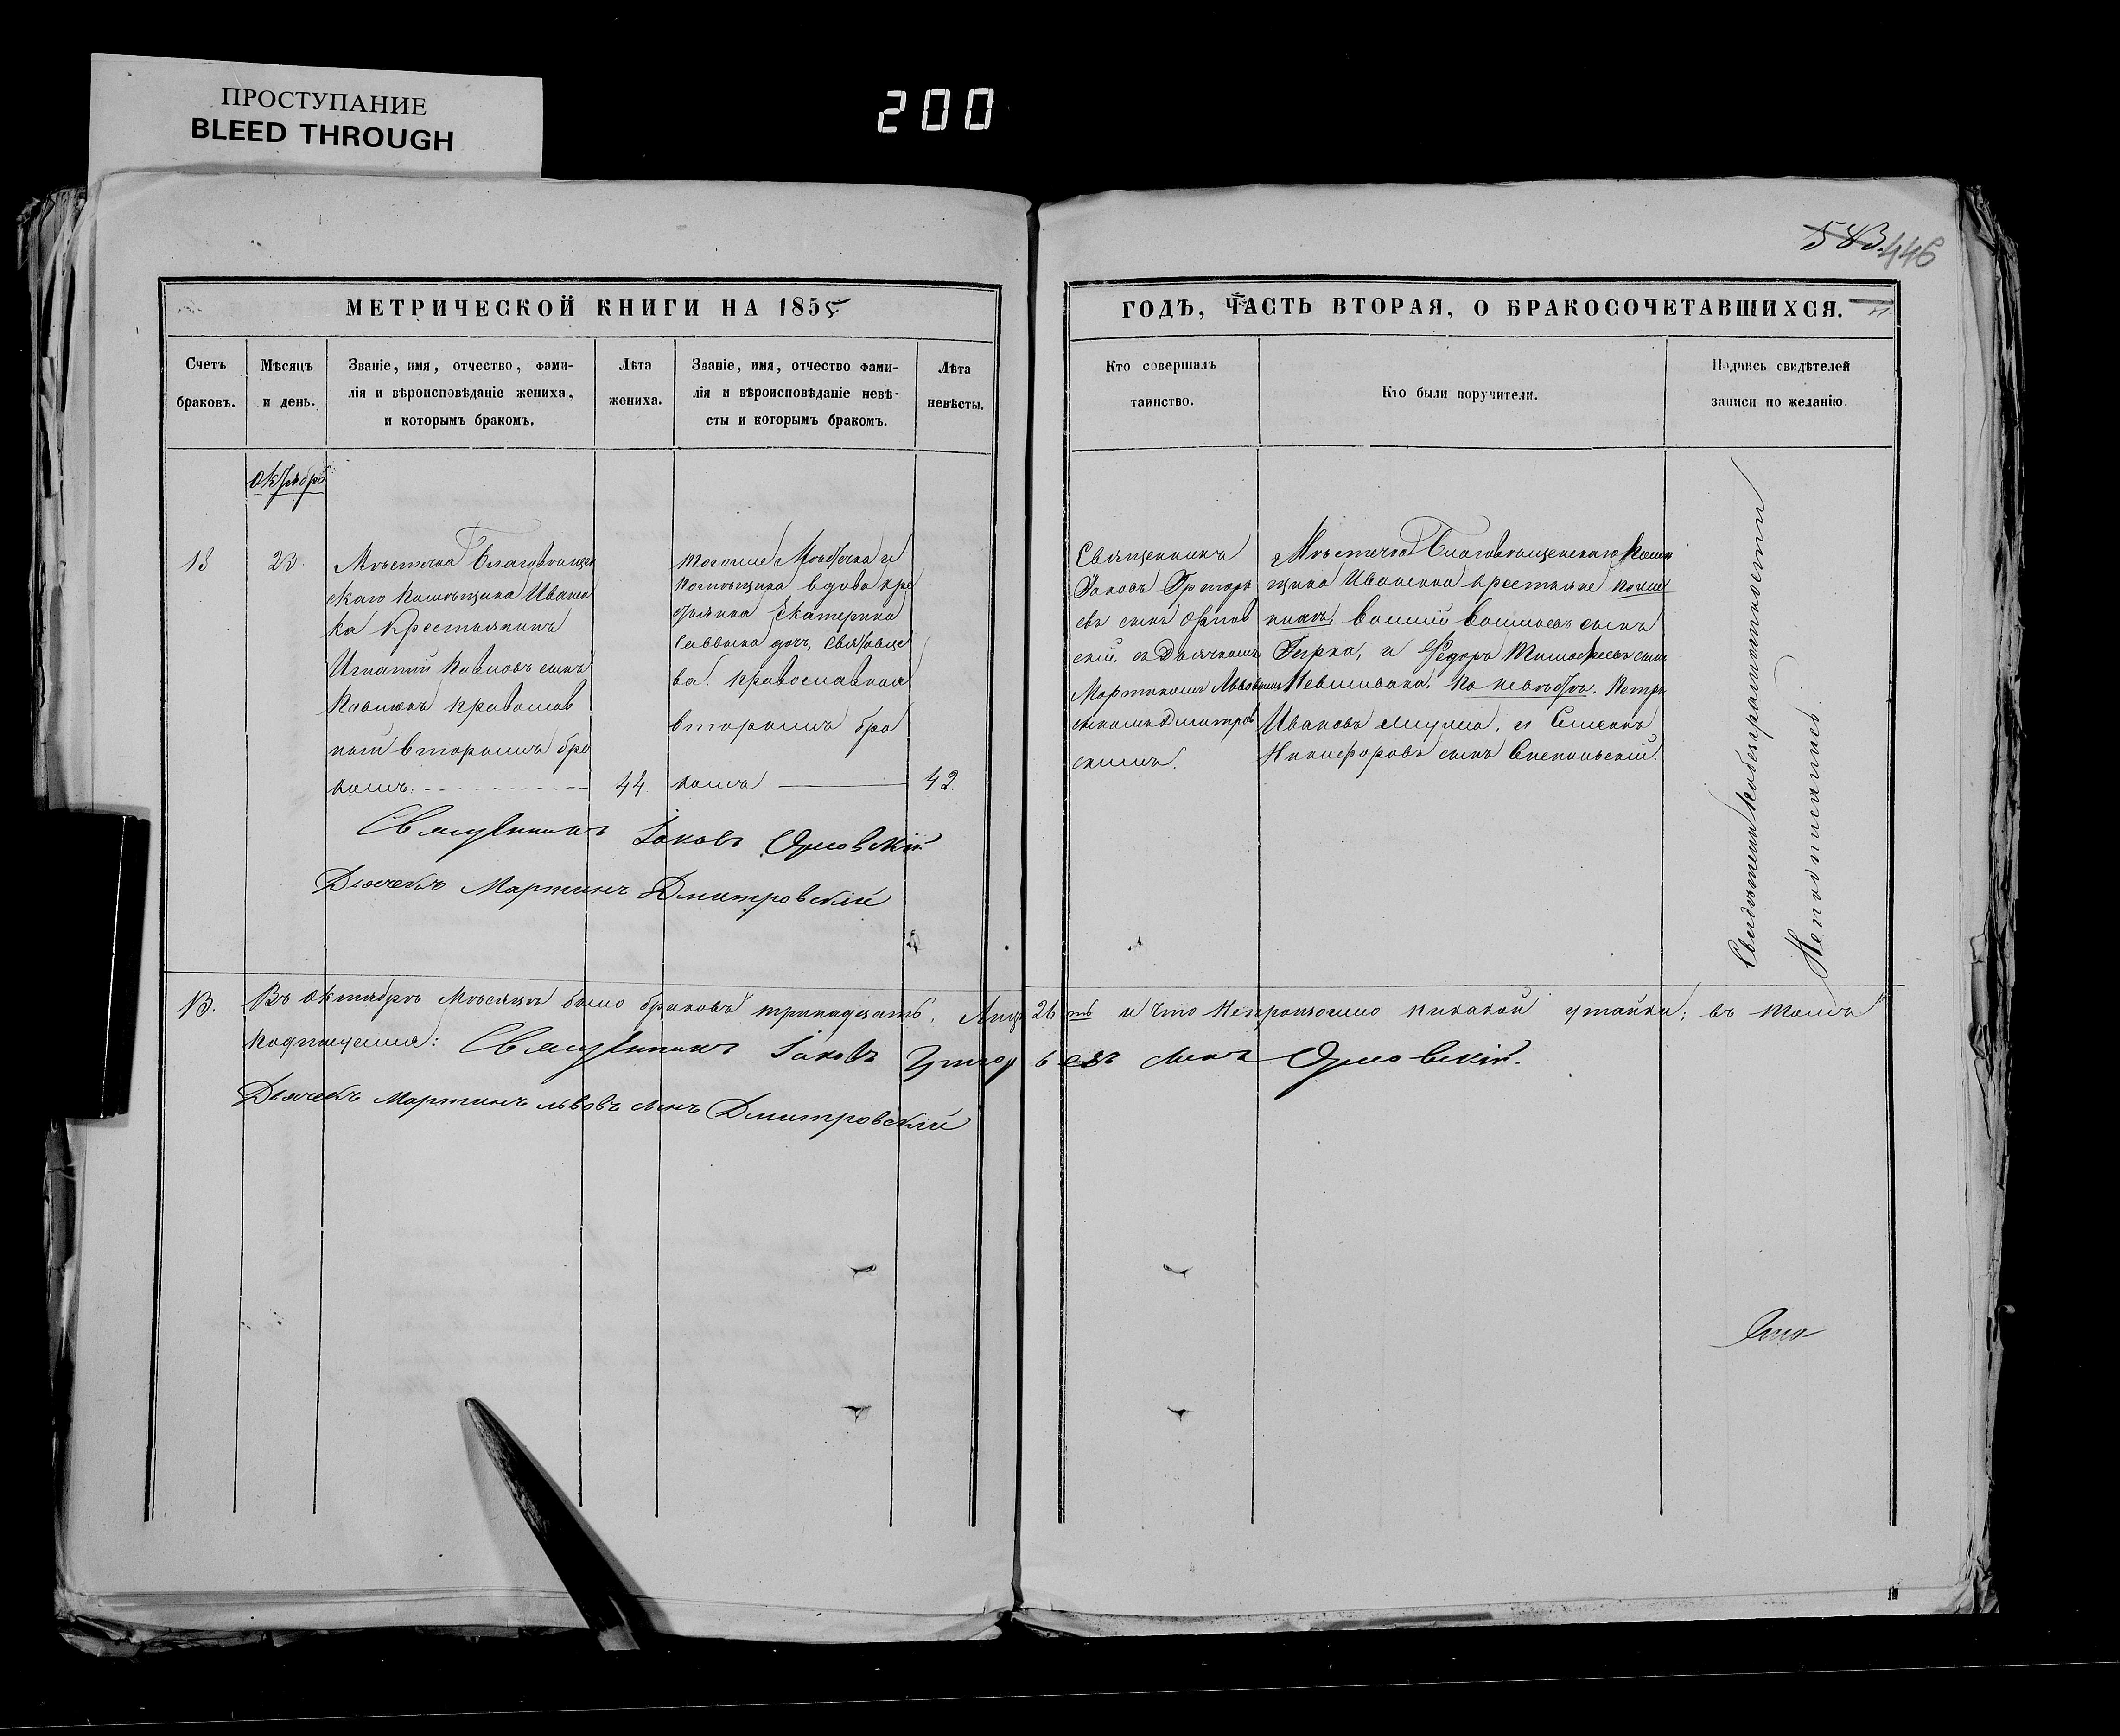 ПРОСТУПАНИЕ
BLEED THROUGH
200
583. 446
МЕТРИЧЕСКОЙ КНИГИ НА 1855
ГОДЪ, ЧАСТЬ ВТОРАЯ, О БРАКОСОЧЕТАВШИХСЯ.
Счетъ
браковъ.
Мѣсяцъ
и день.
Званіе, имя, отчество, фами-
лія и вѣроисповѣданіе жениха,
и которымъ бракомъ.
Лѣта
жениха.
Званіе, имя, отчество фами-
лія и вѣроисповѣданіе невѣ-
сты и которымъ бракомъ.
Лѣта
невѣсты.
Кто совершалъ
таинство.
Кто были поручители.
Подпись свидѣтелей
записи по желанію.
Октябрь
13
23.
Мѣстечка Благовѣщен
скаго Помѣщика Иванен
ка Крестьянинъ
Игнатій Павловъ сынъ
православ
ный вторымъ бра
комъ.
44.
тогоже Мѣстечка и
помѣщика вдова кре
стьянка Екатерина
Саввина дочь,
ва. православная
вторымъ бра
комъ
42.
Священникъ
Іаковъ Григорь
евъ сынъ Орлов
скій. съ Дьячкомъ
Мартиномъ Львовымъ
сыномъ Дмитров
скимъ.
Мѣстечка Благовѣщенскаго Помѣ
щика Иваненка крестьяне по же
нихѣ. сынъ
и Федоръ Тимофеевъ сынъ
по невѣстѣ. Петръ
Ивановъ и Семенъ
Никифоровъ сынъ
Свидѣтели по безграмотности
Неподписались.
Священникъ Іаковъ Орловскій
Дьячекъ Мартинъ Дмитровскій
13. Въ Октябрѣ Мѣсяцѣ было браковъ тринадцать. Лицъ 26ть и что непроизошло никакой утайки; въ томъ
подпищемся: Священникъ Іаковъ Григорьевъ сынъ Орловскій.
Дьячекъ Мартинъ Львовъ сынъ Дмитровскій